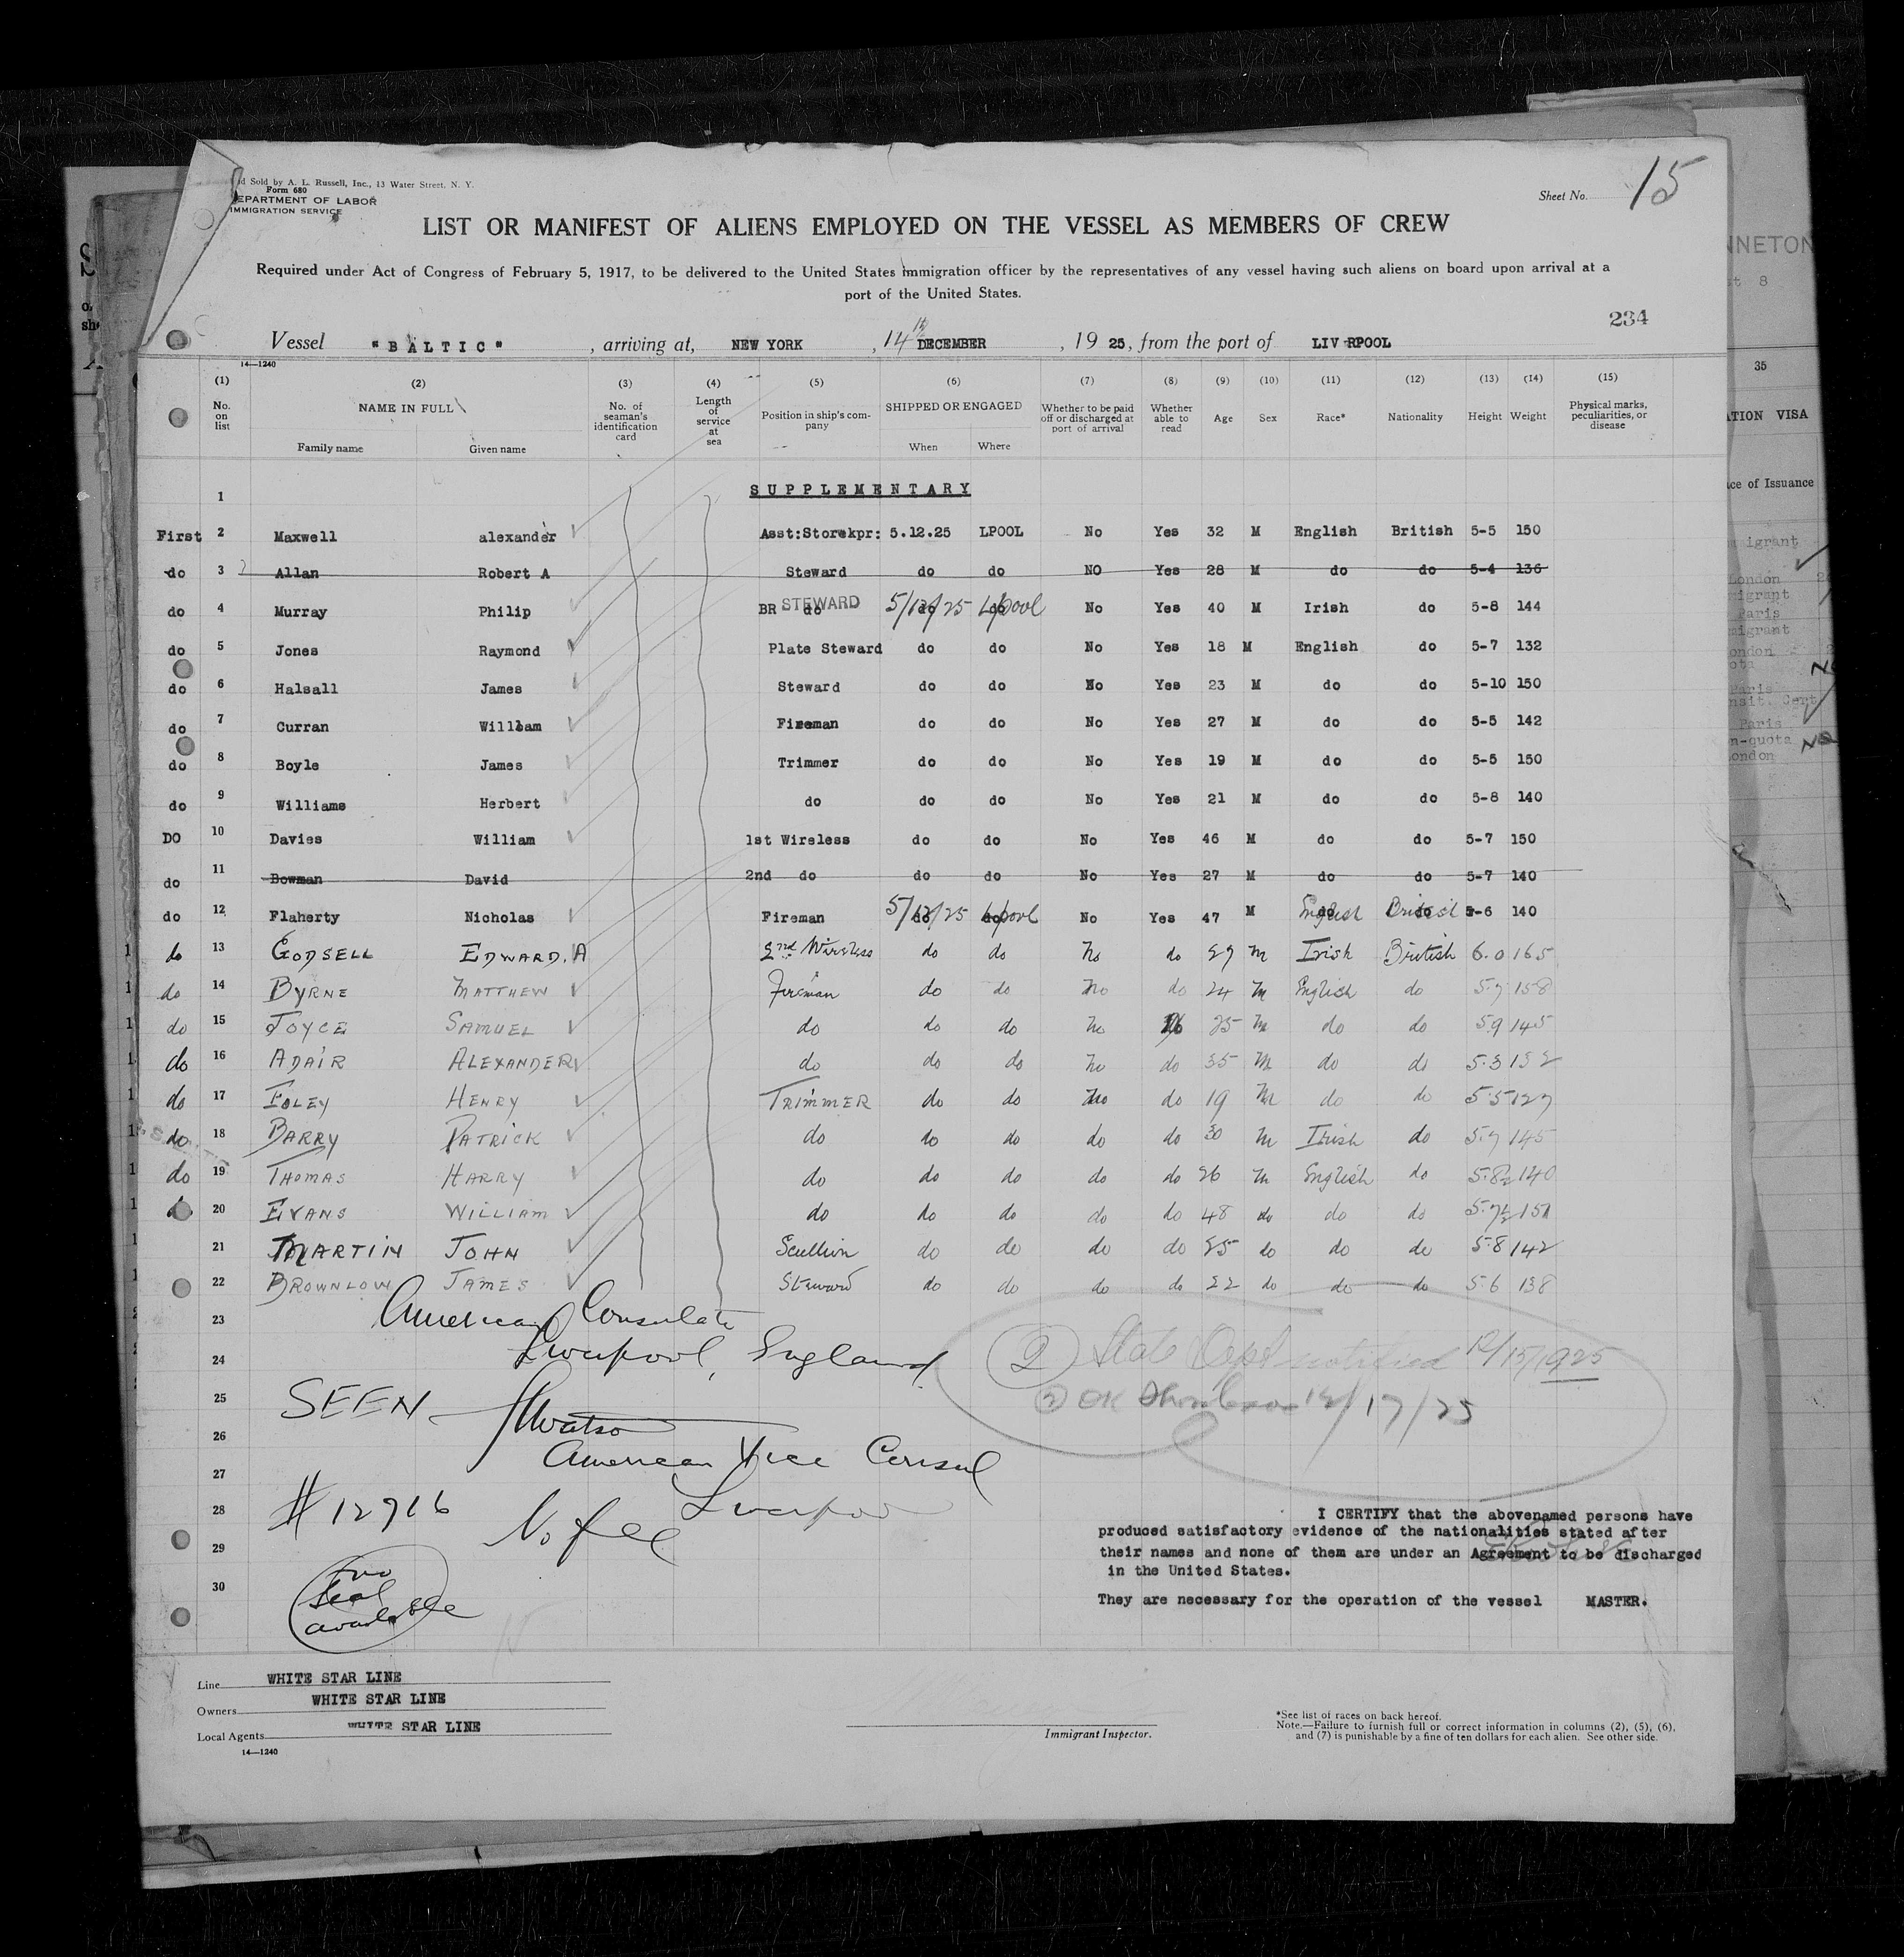 d Sold by A. L. Russell, Inc., 13 Water Street, N. Y.
Form 680
EPARTMENT OF LABOR
IMMIGRATION SERVICE
Sheet No. 15
LIST OR MANIFEST OF ALIENS EMPLOYED ON THE VESSEL AS MEMBERS OF CREW
Required under Act of Congress of February 5, 1917, to be delivered to the United States immigration officer by the representatives of any vessel having such aliens on board upon arrival at a
port of the United States.
234
Vessel "BALTIC", arriving at, NEW YORK, 14th DECEMBER, 19 25, from the port of LIV RPOOL
14—1240
(1) (2) (3) (4) (5) (6) (7) (8) (9) (10) (11) (12) (13) (14) (15)
No. on list NAME IN FULL Family name Given name No. of seaman's identification card Length of service at sea Position in ship's company SHIPPED OR ENGAGED When Where Whether to be paid off or discharged at port of arrival Whether able to read Age Sex Race* Nationality Height Weight Physical marks, peculiarities, or disease
1 SUPPLEMENTARY
First 2 Maxwell alexander Asst:Storekpr: 5.12.25 LPOOL No Yes 32 M English British 5-5 150
do 3 Allan Robert A Steward do do NO Yes 28 M do do 5-4 136
do 4 Murray Philip BR do STEWARD 5/12/25 L/pool No Yes 40 M Irish do 5-8 144
do 5 Jones Raymond Plate Steward do do No Yes 18 M English do 5-7 132
do 6 Halsall James Steward do do No Yes 23 M do do 5-10 150
do 7 Curran William Fireman do do No Yes 27 M do do 5-5 142
do 8 Boyle James Trimmer do do No Yes 19 M do do 5-5 150
do 9 Williams Herbert do do do No Yes 21 M do do 5-8 140
DO 10 Davies William 1st Wireless do do No Yes 46 M do do 5-7 150
do 11 Bowman David 2nd do do do No Yes 27 M do do 5-7 140
do 12 Flaherty Nicholas Fireman 5/12/25 L/pool No Yes 47 M English British 5-6 140
do 13 GODSELL EDWARD. A 2nd Wireless do do No do 27 M Irish British 6.0 165
do 14 BYRNE MATTHEW Fireman do do No do 24 M English do 5.7 158
do 15 JOYCE SAMUEL do do do No 25 M do do 5.9 145
do 16 ADAIR ALEXANDER do do do No do 35 M do do 5.3 132
do 17 FOLEY HENRY TRIMMER do do No do 19 M do do 5.5 127
do 18 BARRY PATRICK do do do do do 30 M Irish do 5.7 145
do 19 THOMAS HARRY do do do do do 26 M English do 5.8½ 140
do 20 EVANS WILLIAM do do do do do 48 do do do 5.7½ 151
21 MARTIN JOHN Scullion do do do do 25 do do do 5.8 142
22 BROWNLOW JAMES Steward do do do do 22 do do do 5.6 138
23 American Consulate
24 Liverpool, England
2 State Dept notified 12/15/1925
2 OK 12/17/25
25 SEEN Watson
26 American Vice Consul
27 Liverpool
28 #12716 No fee
29
30 no seal available
I CERTIFY that the abovenamed persons have
produced satisfactory evidence of the nationalities stated after
their names and none of them are under an Agreement to be discharged
in the United States.
They are necessary for the operation of the vessel MASTER.
Line WHITE STAR LINE
Owners WHITE STAR LINE
Local Agents WHITE STAR LINE
14—1240
Immigrant Inspector.
*See list of races on back hereof.
Note.—Failure to furnish full or correct information in columns (2), (5), (6),
and (7) is punishable by a fine of ten dollars for each alien. See other side.
NNETON
8
35
ATION VISA
ce of Issuance
igrant
London
igrant
Paris
migrant
ondon
ota
Paris
nsit. Cert
Paris
n-quota
ondon